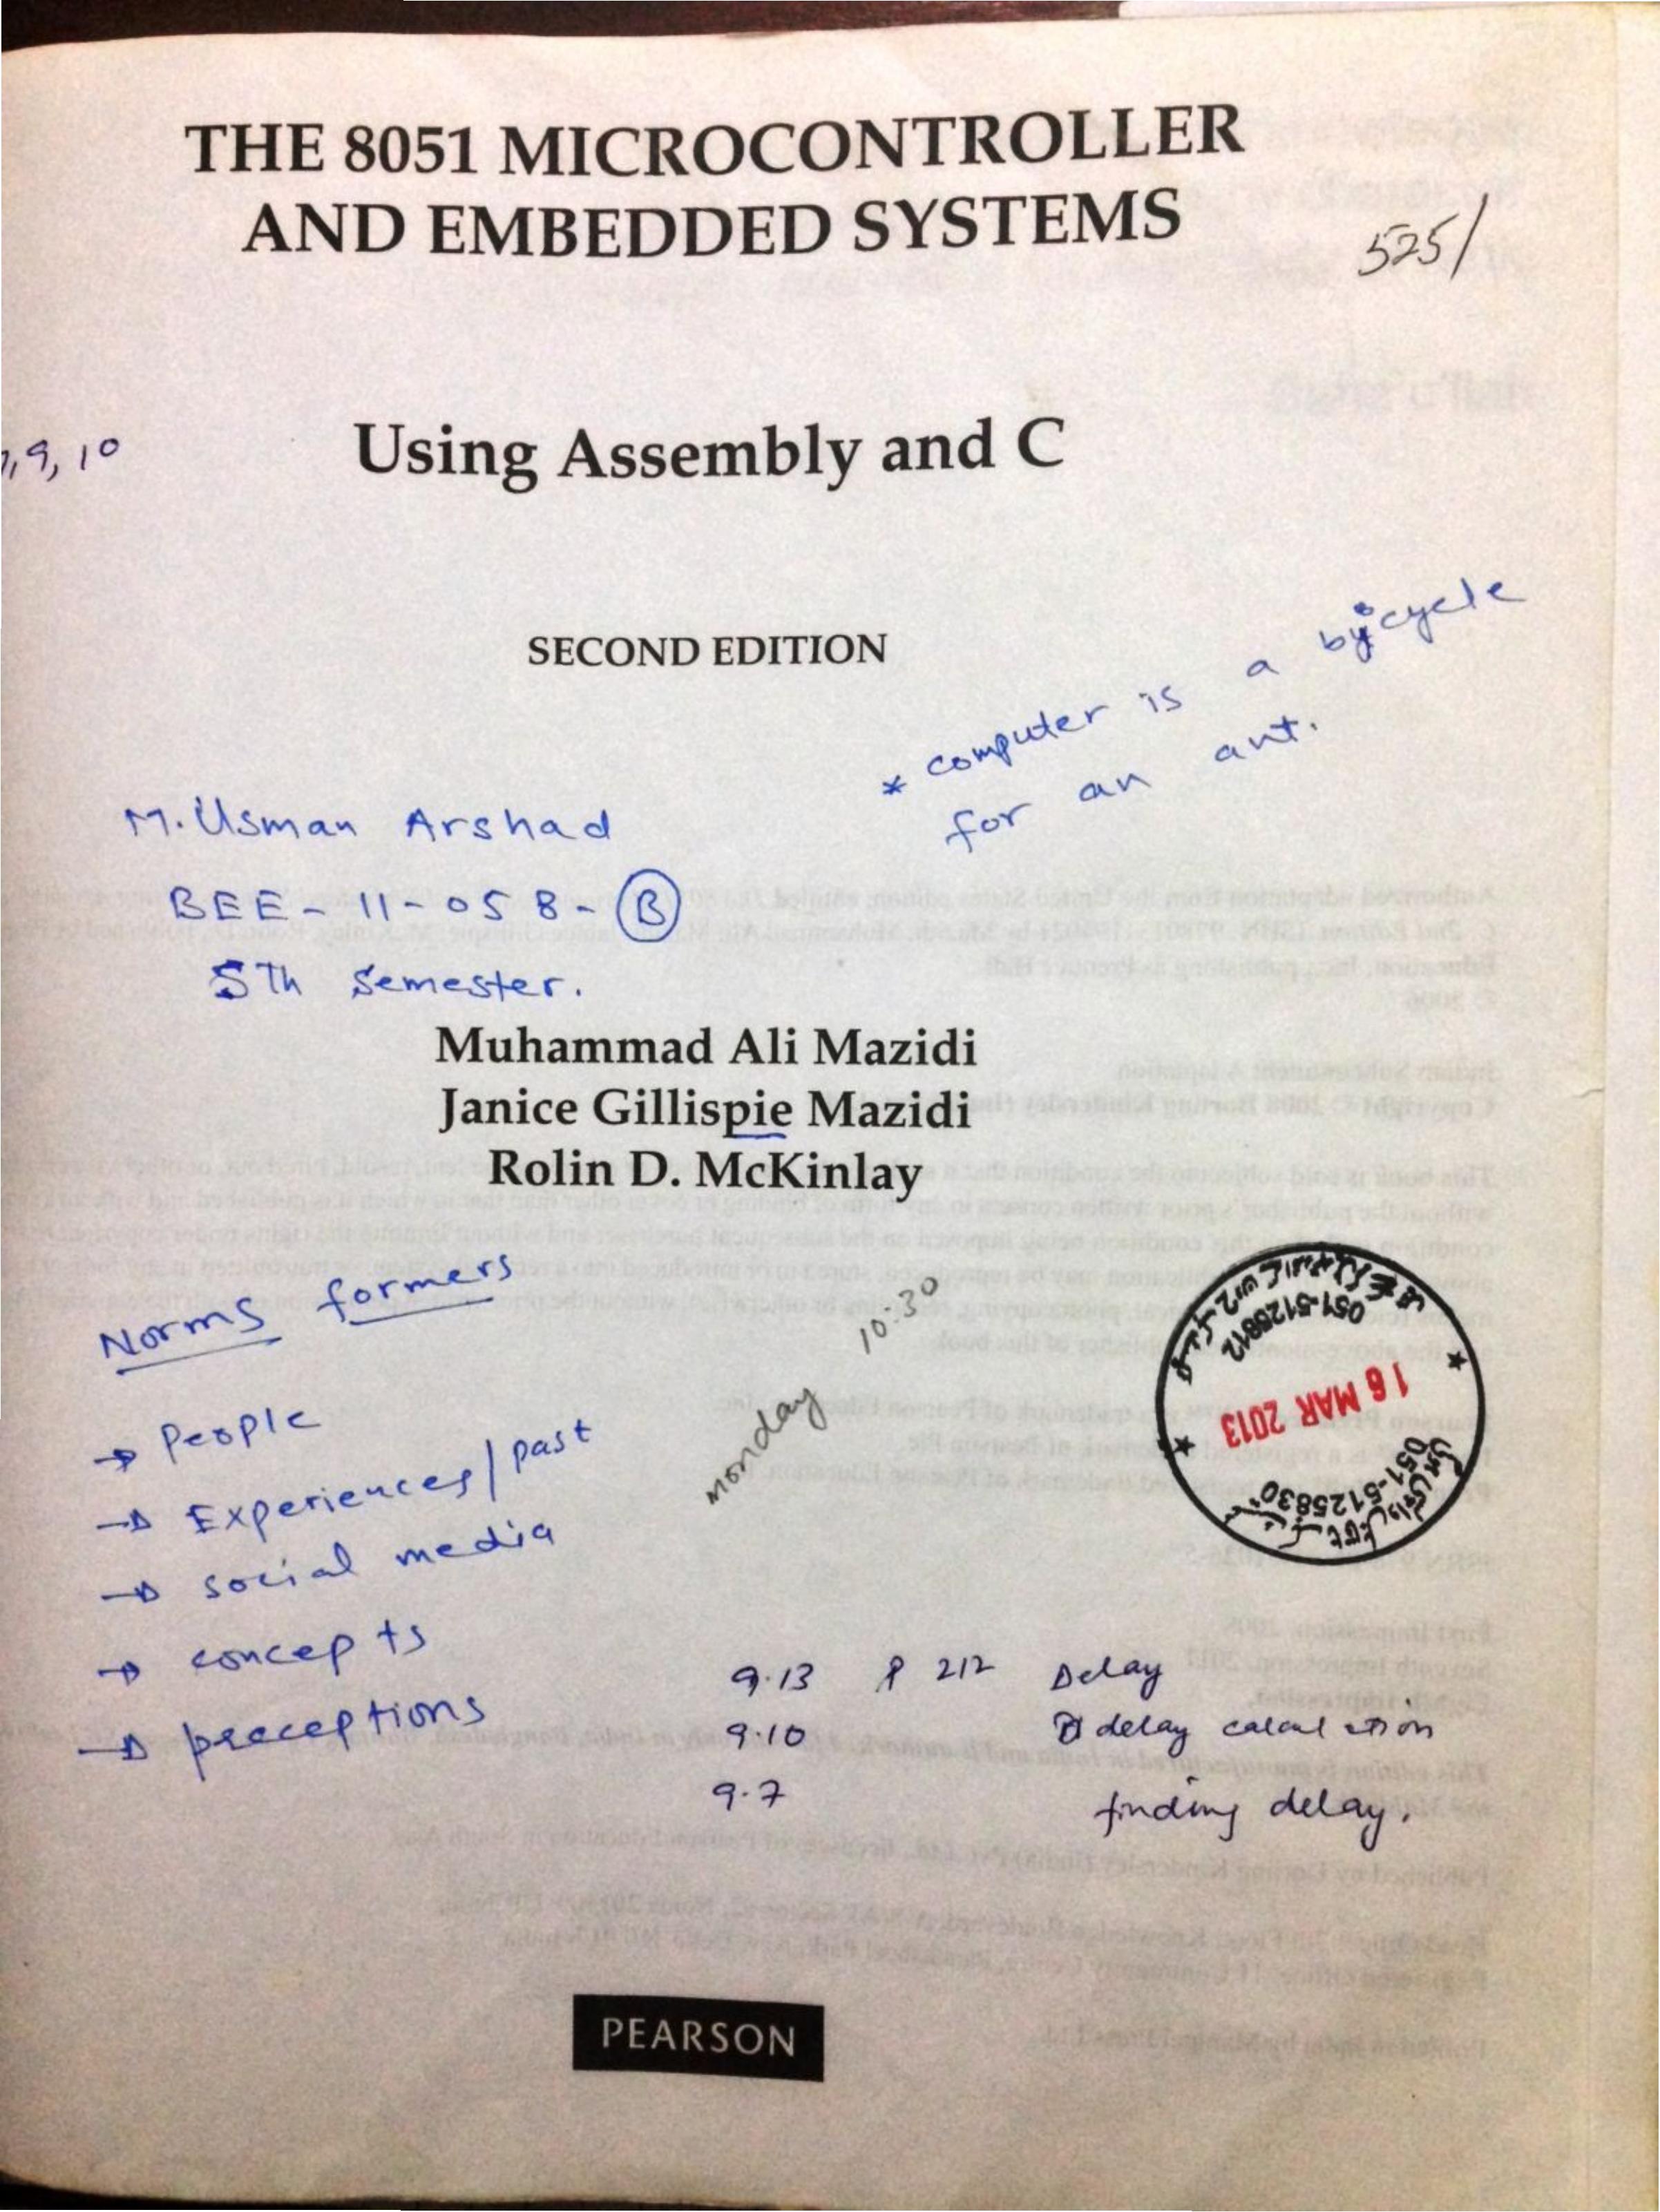 THE 8051 MICROCONTROLLER
AND EMBEDDED SYSTEMS
525/
9, 10
Using Assembly and C
SECOND EDITION
* computer is a bycycle
for an ant.
M. Usman Arshad
BEE-11-058-B
5Th Semester.
Muhammad Ali Mazidi
Janice Gillispie Mazidi
Rolin D. McKinlay
Norms formers
→ People
→ Experiences/past
→ social media
→ concepts
→ preceptions
monday 10:30
051-5125812
16 MAR 2013
051-5125830
9.13 P 212 Delay
9.10 delay calculation
9.7 finding delay.
PEARSON